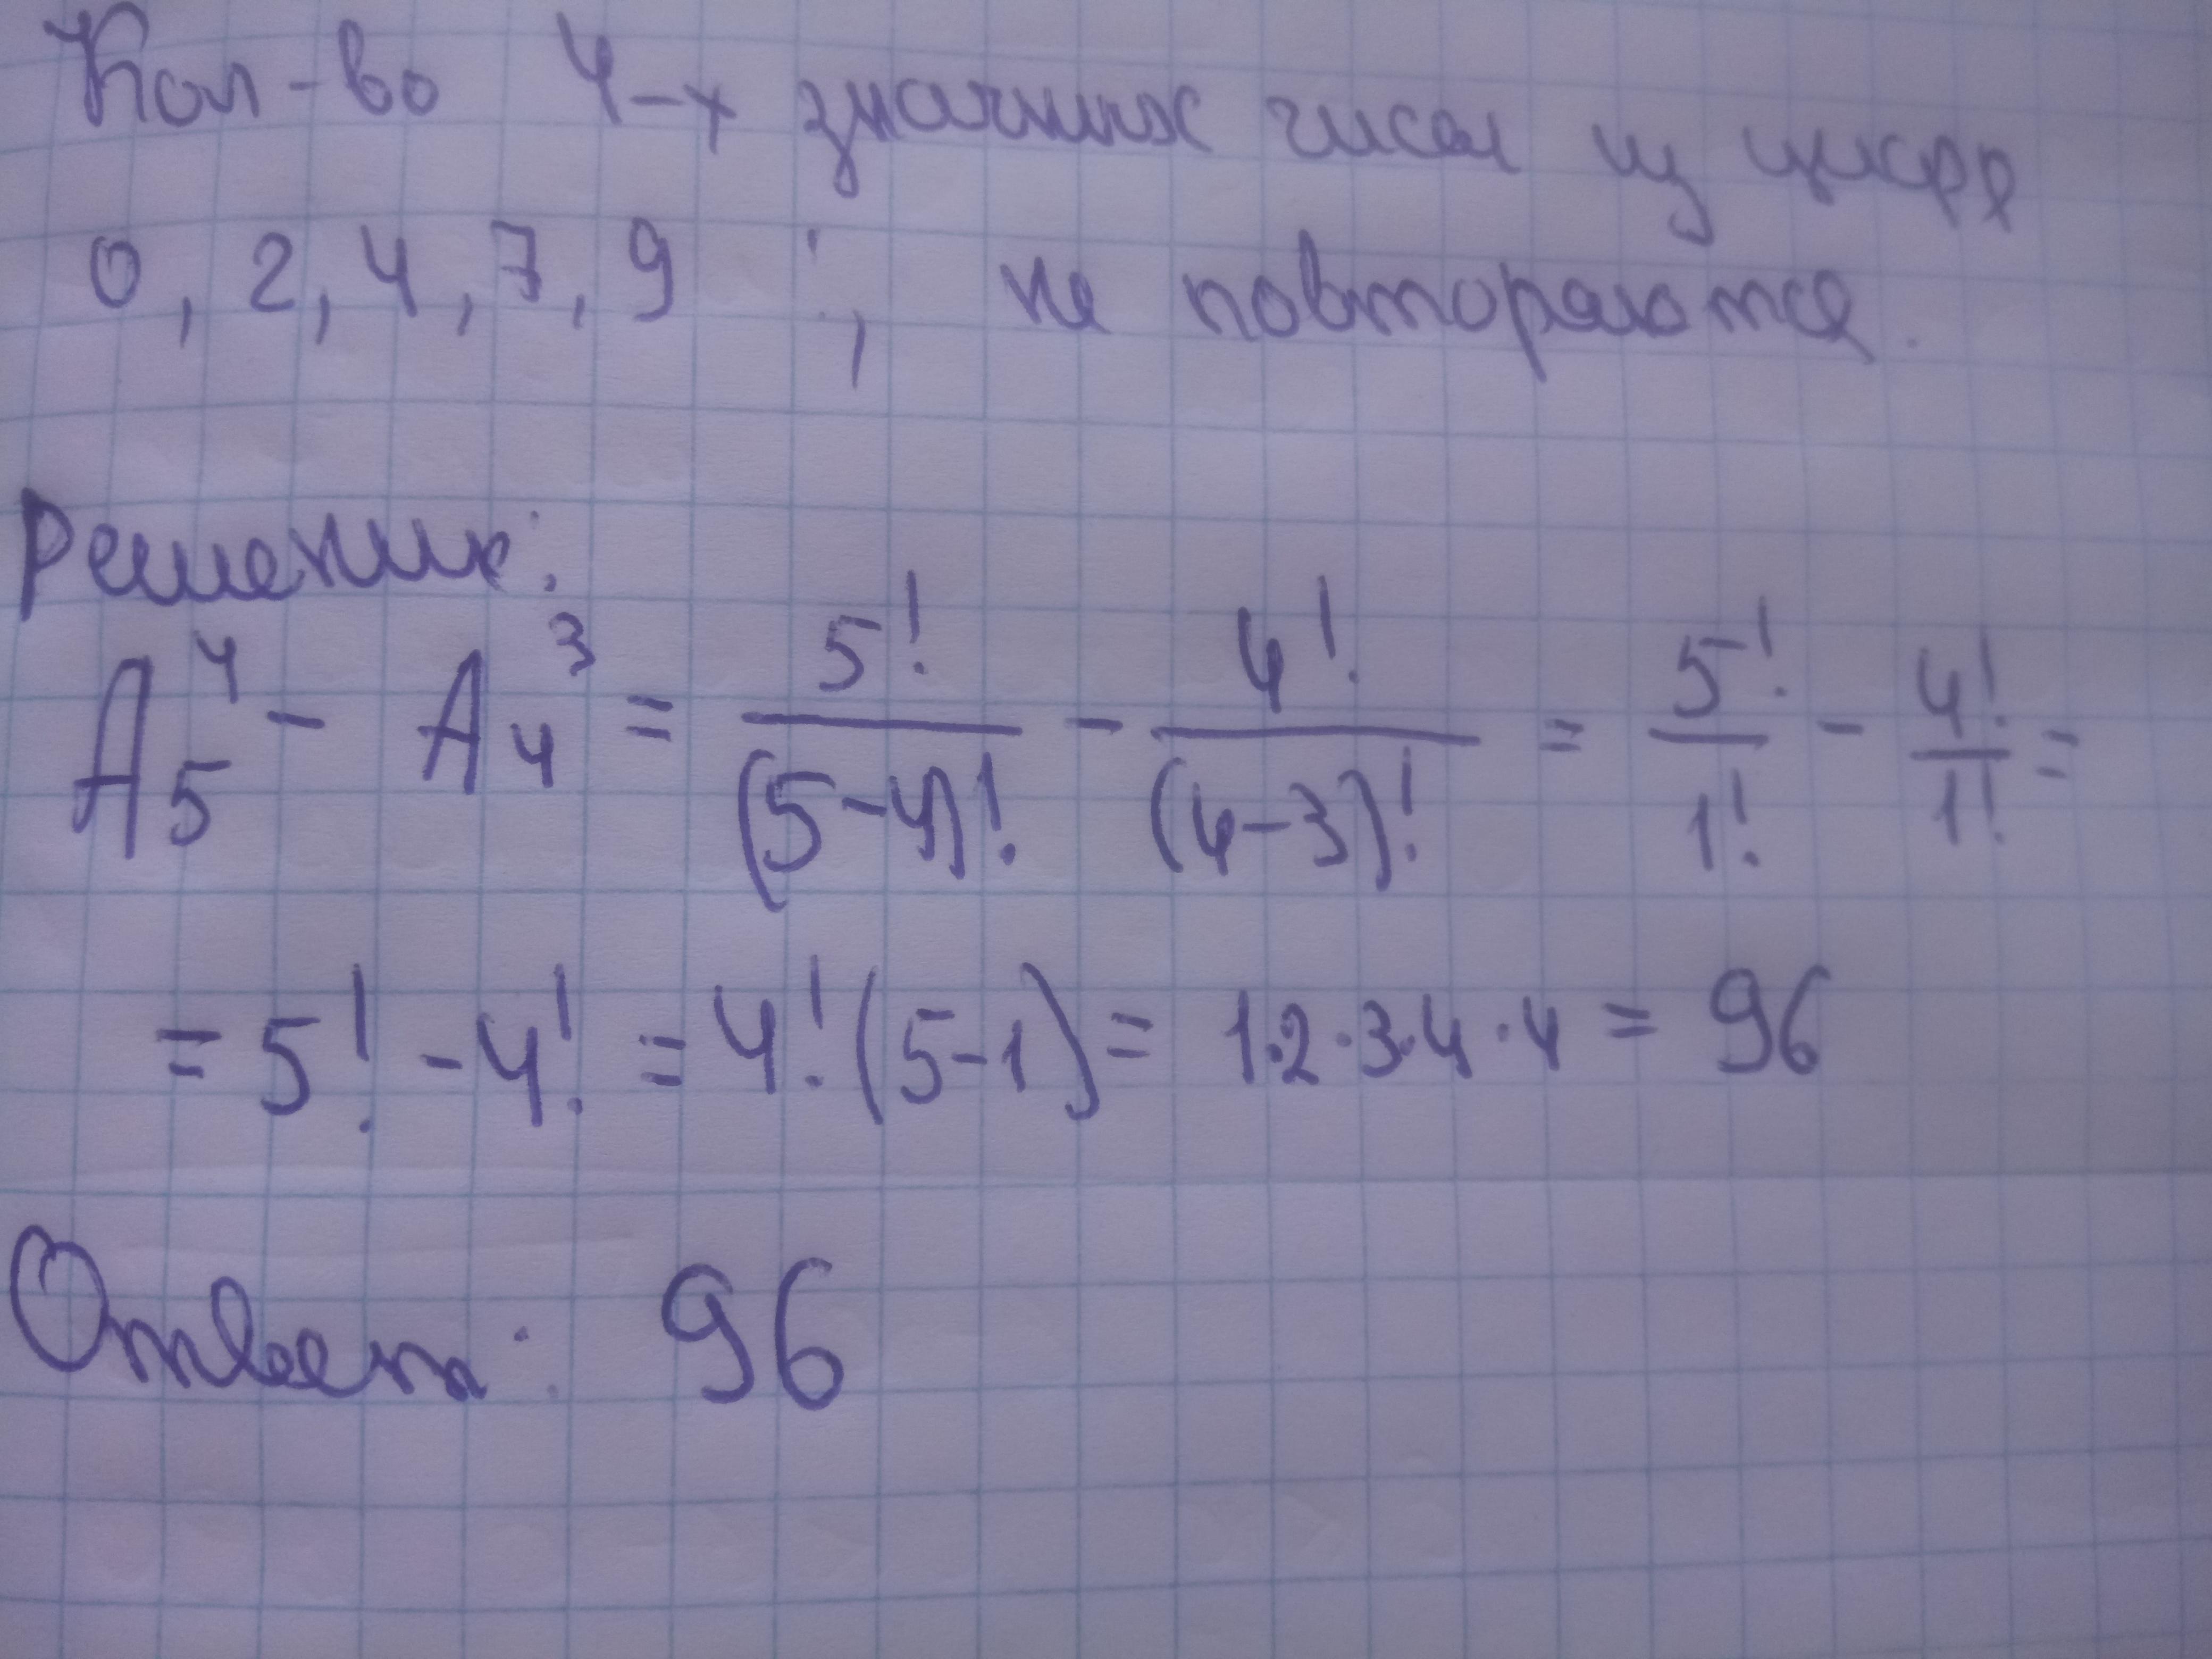 Кол-во 4-х значных чисел из цифр
0, 2, 4, 7, 9 ; не повторяются.
Решение:
A₅⁴ - A₄³ = 5!/(5-4)! - 4!/(4-3)! = 5!/1! - 4!/1! =
= 5! - 4! = 4!(5-1) = 1·2·3·4·4 = 96
Ответ: 96